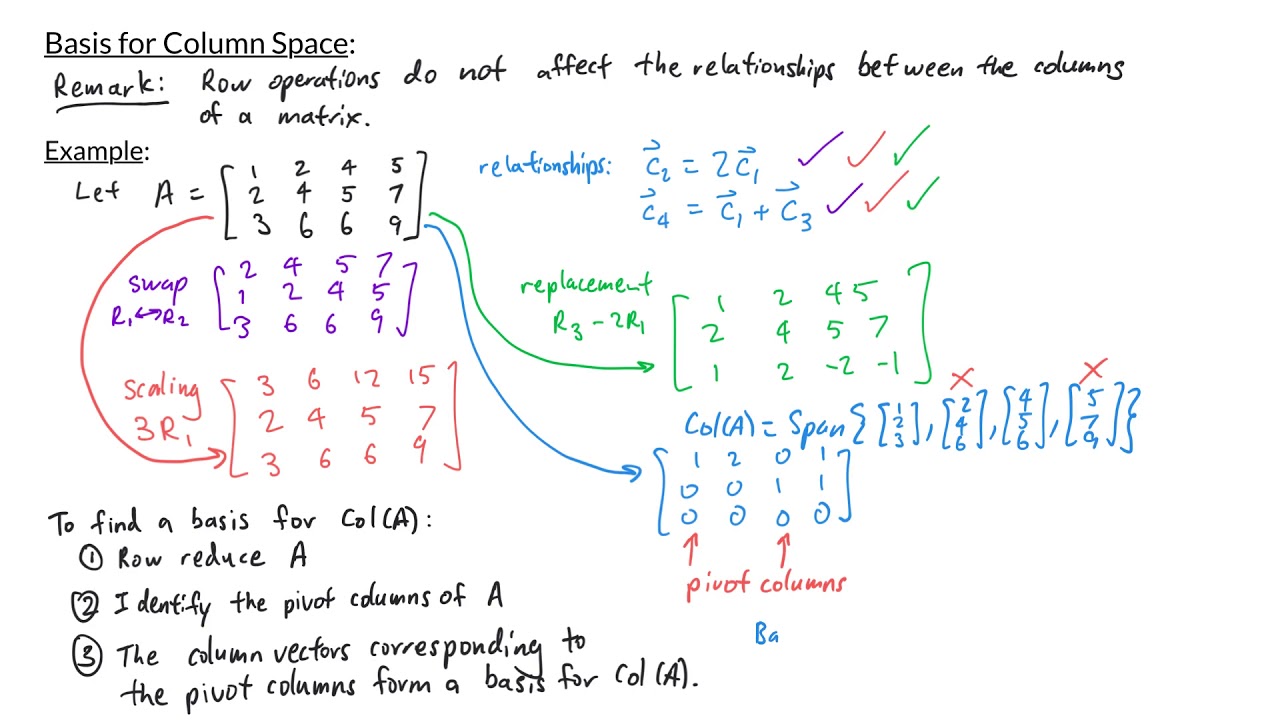 Basis for Column Space:
Remark: Row operations do not affect the relationships between the columns
of a matrix.
Example:
Let A = [1 2 4 5
2 4 5 7
3 6 6 9]
relationships: c⃗₂ = 2c⃗₁ ✓ ✓ ✓
c⃗₄ = c⃗₁ + c⃗₃ ✓ ✓ ✓
swap
R₁↔R₂
[2 4 5 7
1 2 4 5
3 6 6 9]
replacement
R₃ - 2R₁
[1 2 4 5
2 4 5 7
1 2 -2 -1]
scaling
3R₁
[3 6 12 15
2 4 5 7
3 6 6 9]
× ×
Col(A) = Span{[1 2 3], [2 4 6], [4 5 6], [5 7 9]}
[1 2 0 1
0 0 1 1
0 0 0 0]
↑ ↑
pivot columns
Ba
To find a basis for Col(A):
① Row reduce A
② Identify the pivot columns of A
③ The column vectors corresponding to
the pivot columns form a basis for Col(A).